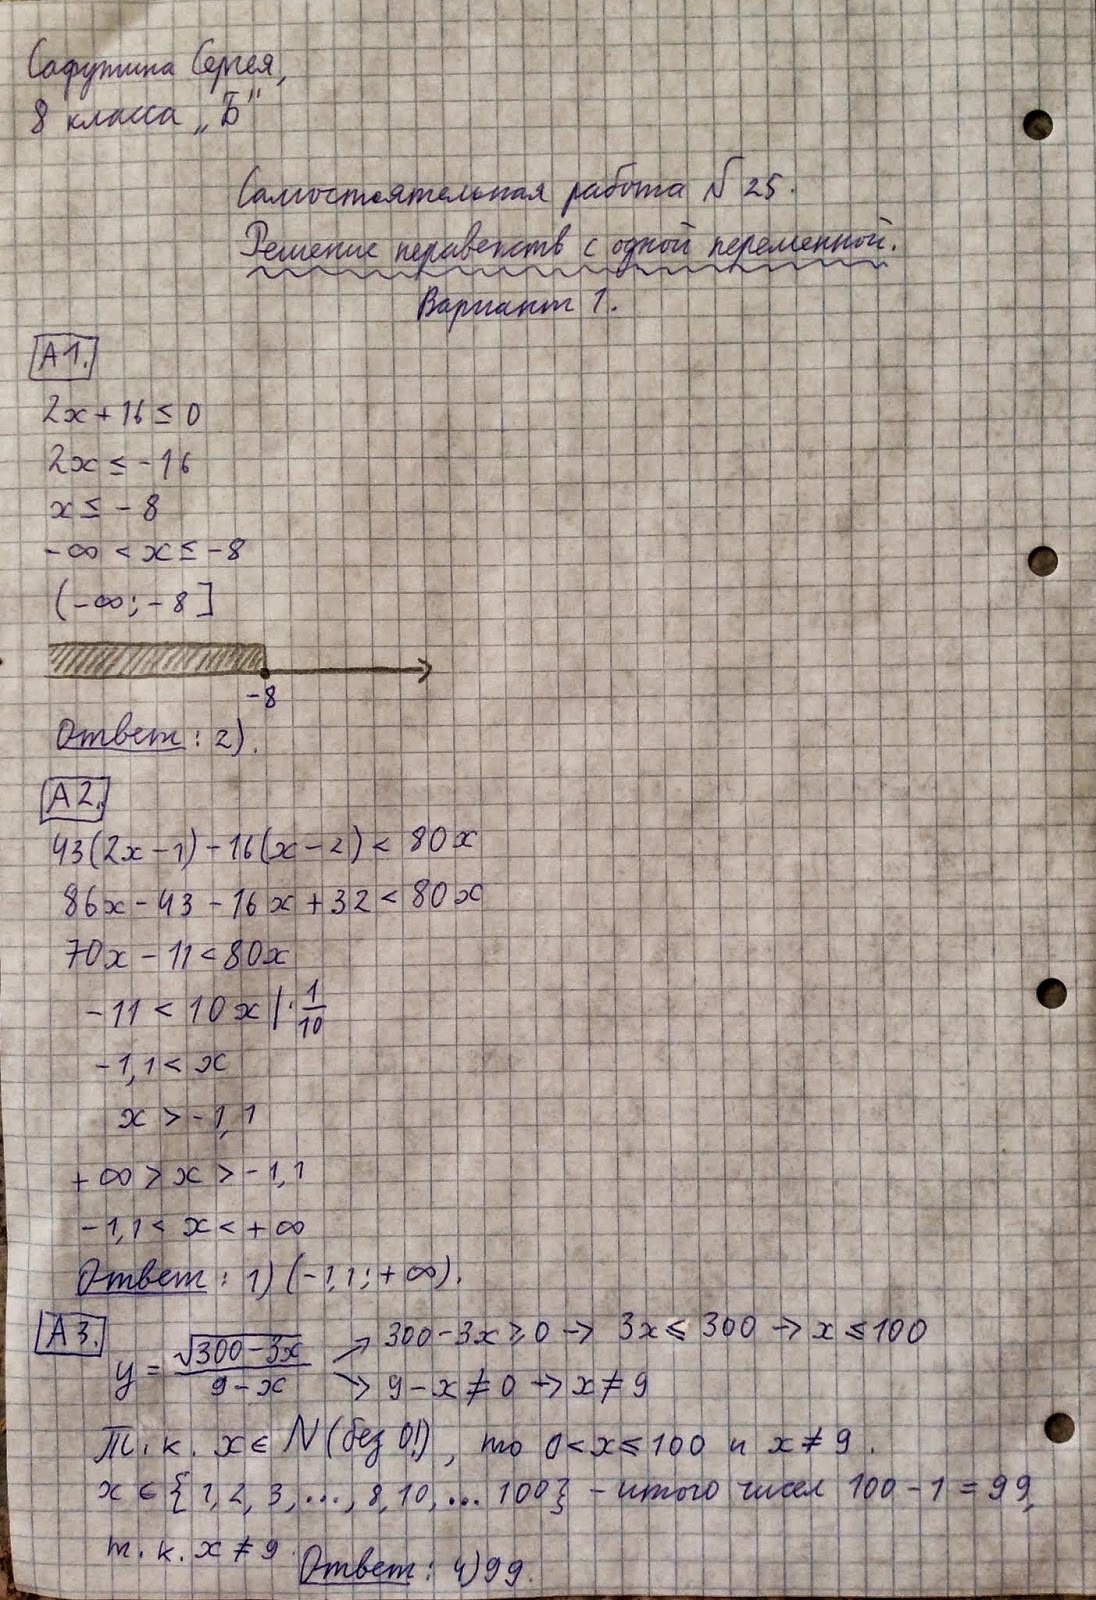 Сафутина Сергея,
8 класса „Б"
Самостоятельная работа № 25.
Решение неравенств с одной переменной.
Вариант 1.
А1.
2x + 16 ≤ 0
2x ≤ -16
x ≤ -8
-∞ < x ≤ -8
(-∞; -8]
-8
Ответ: 2).
А2.
43(2x - 1) - 16(x - 2) < 80x
86x - 43 - 16x + 32 < 80x
70x - 11 < 80x
-11 < 10x | · 1/10
-1,1 < x
x > -1,1
+∞ > x > -1,1
-1,1 < x < +∞
Ответ: 1) (-1,1; +∞).
А3.
y = √300-3x / 9-x
300 - 3x ≥ 0 → 3x ≤ 300 → x ≤ 100
9 - x ≠ 0 → x ≠ 9
Т.к. x ∈ N (без 0!), то 0 < x ≤ 100 и x ≠ 9.
x ∈ {1, 2, 3, ..., 8, 10, ... 100} - итого чисел 100 - 1 = 99,
т.к. x ≠ 9.
Ответ: 4) 99.